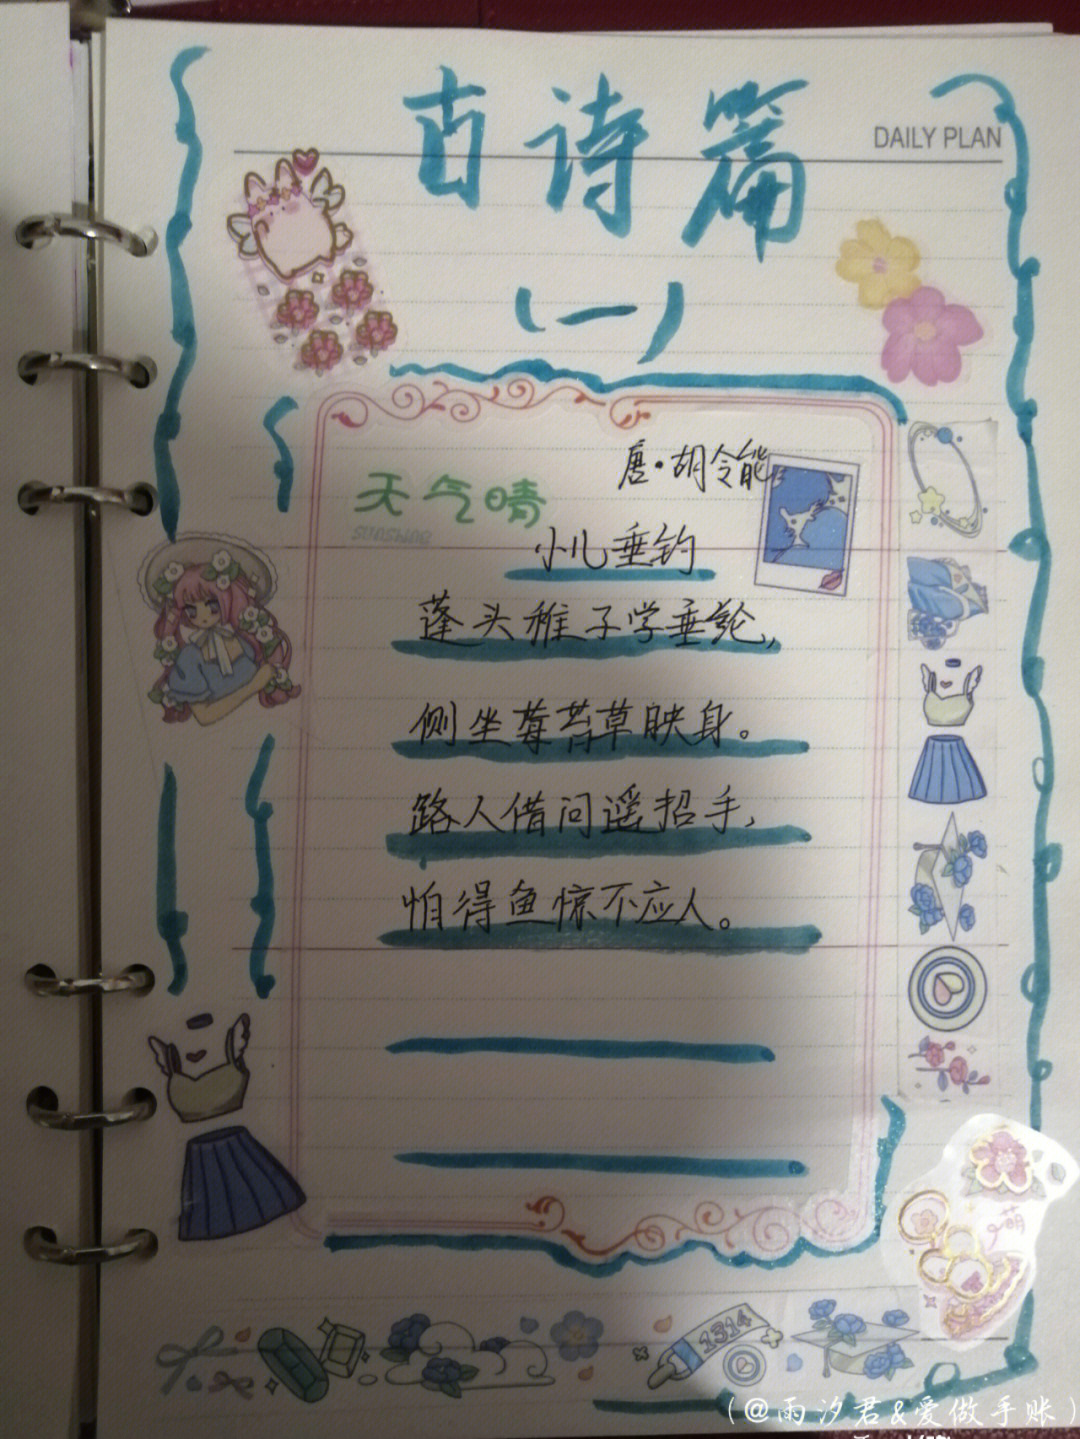 古诗篇
DAILY PLAN
（一）
唐·胡令能
天气晴
SUNSHINE
小儿垂钓
蓬头稚子学垂纶，
侧坐莓苔草映身。
路人借问遥招手，
怕得鱼惊不应人。
萌
1314
（@雨汐君&爱做手账）